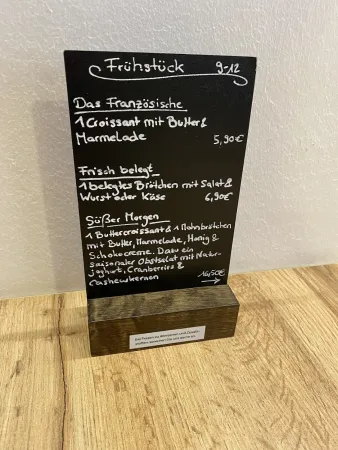 Frühstück 9-12
Das Französische
1 Croissant mit Butter &
Marmelade 5,90€
Frisch belegt
1 belegtes Brötchen mit Salat &
Wurst oder Käse 6,90€
Süßer Morgen
1 Buttercroissant & 1 Mohnbrötchen
mit Butter, Marmelade, Honig &
Schokocreme. Dazu ein
saisonaler Obstsalat mit Natur-
joghurt, Cranberries &
Cashewkernen 16,50€
→
Bei Fragen zu Allergenen und Zusatz-
stoffen, sprechen Sie uns gerne an.